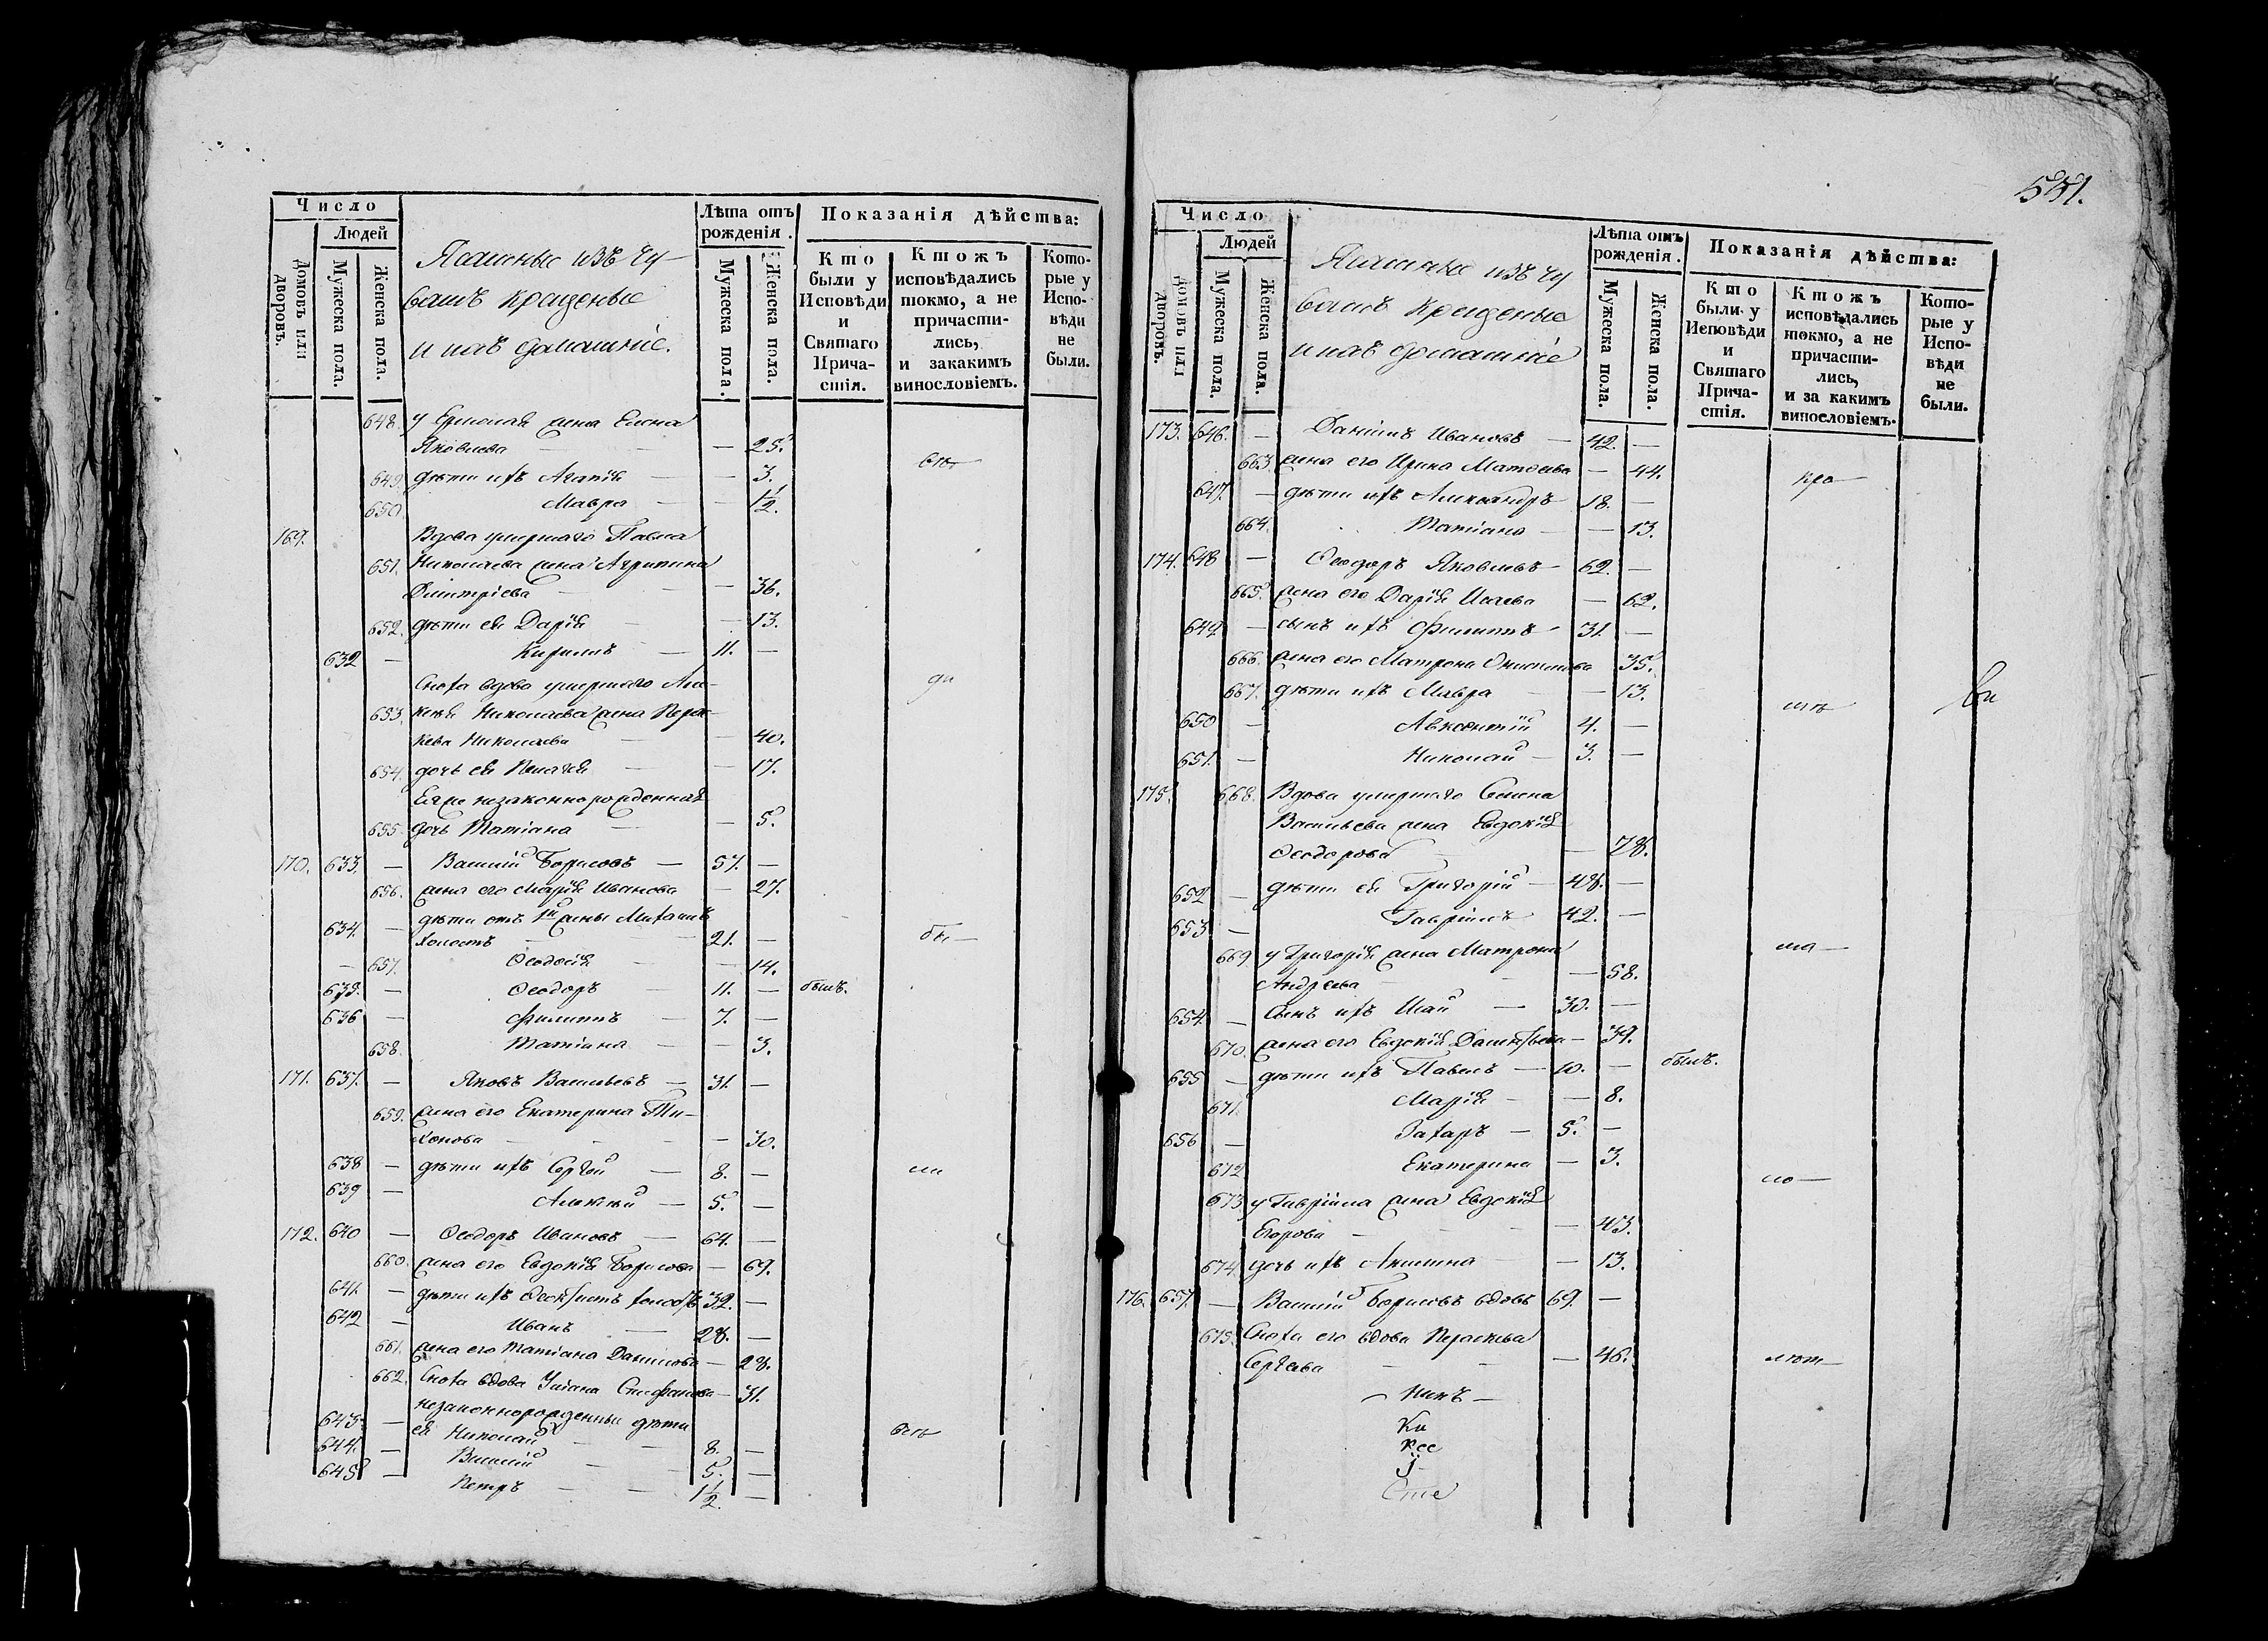 Число
Людей
Домовъ или дворовъ.
Мужеска пола.
Женска пола.
Ясашные изъ Чу-
вашъ крещеные
и ихъ домашніе.
Лѣта отъ рожденія.
Мужеска пола.
Женска пола.
Показанія дѣйства:
Кто были у Исповѣди и Святаго Прича-стія.
Ктожъ исповѣдались токмо, а не причасти-лись, и закакимъ винословіемъ.
Кото-рые у Испо-вѣди не были.
648. у Ермолая жена Елена
Яковлева — 25.
649. дѣти ихъ Агапія — 3.
650. Мавра — 1 1/2.
169. Вдова умершаго Павла
651. Николаева жена Агрипина
Димитріева — 36.
652. дѣти ея Дарія — 13.
632 — Кирилъ — 11. —
Сноха вдова умершаго Але-
653. ксѣя Николаева жена Парас-
кева Николаева — 40.
654. дочь ея Пелагея — 17.
Ея же незаконнорожденная
655. дочь Татіана — 5.
170. 633. — Василій Борисовъ — 57. —
656. жена его Марія Иванова — 27.
634. — дѣти отъ 1й жены Михаилъ
холостъ 21. —
— 657. Ѳеодосія — 14.
635. — Ѳеодоръ — 11. — былъ.
636 — Филиппъ — 7. —
658. Татіана — — 3.
171. 637. — Яковъ Васильевъ — 31. —
659. жена его Екатерина Ти-
хонова — 30.
638 — дѣти ихъ Сергѣй — 8. —
639 — Алексѣй — 5. —
172. 640 — Ѳеодоръ Ивановъ — 64. —
660. жена его Евдокія Борисова — 69.
641. — дѣти ихъ Ѳеоктистъ холостъ 32. —
642 — Иванъ — 28. —
661. жена его Татіана Данилова — 28.
662. Сноха вдова Уліана Стефанова — 31.
незаконнорожденныи дѣти
643. — ея Николай — 8. —
644. — Василій — 5. —
645 — Петръ — 1 1/2. —
ди
бы —
ли
551.
Число
Людей
Домовъ или дворовъ.
Мужеска пола.
Женска пола.
Ясашные изъ Чу
вашъ крещеные
и ихъ домашніе
Лѣта отъ рожденія.
Мужеска пола.
Женска пола.
Показанія дѣйства:
Кто были у Исповѣди и Святаго Прича-стія.
Ктожъ исповѣдались токмо, а не причасти-лись, и за какимъ винословіемъ.
Кото-рые у Испо-вѣди не были.
173. 646. — Даніилъ Ивановъ — 42. —
663. жена его Ирина Матѳеева — 44.
647. — дѣти ихъ Александръ 18. —
664. Татіана — — 13.
174. 648 — Ѳеодоръ Яковлевъ — 62. —
665. жена его Дарія Исаева — 62.
649. — сынъ ихъ Филиппъ — 31. —
666. жена его Матрона Онисимова 35.
667. дѣти ихъ Мавра — 13.
650 — Авксентій 4. —
651. — Николай — 3. —
175. 668. Вдова умершаго Семена
Васильева жена Евдокія
Ѳеодорова — 78.
652 — дѣти ея Григорій — 48. —
653. — Гавріилъ 42. —
669. у Григорія жена Матрона
Андреева — 58.
654. — Сынъ ихъ Исай — 30. —
670. жена его Евдокія — 39.
655 — дѣти ихъ Павелъ — 10. — былъ.
671. Марія — — 8.
656 — Захаръ — 5. —
672 Екатерина — 3.
673. у Гавріила жена Евдокія
Егорова — 43.
674. дочь ихъ Акилина — 13.
176. 657. — Василій Борисовъ вдовъ 69. —
675. Сноха его вдова Параскева
Сергѣева — — 46.
кро
ма —
ло —
лѣт